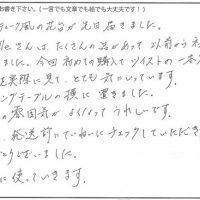 お書き下さい。(一言でも文章でも絵でも大丈夫です！)
ィーク風の花台が先日届きました。
さんは、たくさんの品があって以前から
ました。今回初めての購入でツイストの一本
実際に見て、とても気にいっています。
ングテーブルの横に置きました。
の雰囲気がよくなってうれしいです。
、発送前にていねいにチェックしていただき
とうございました。
に使っていきます。